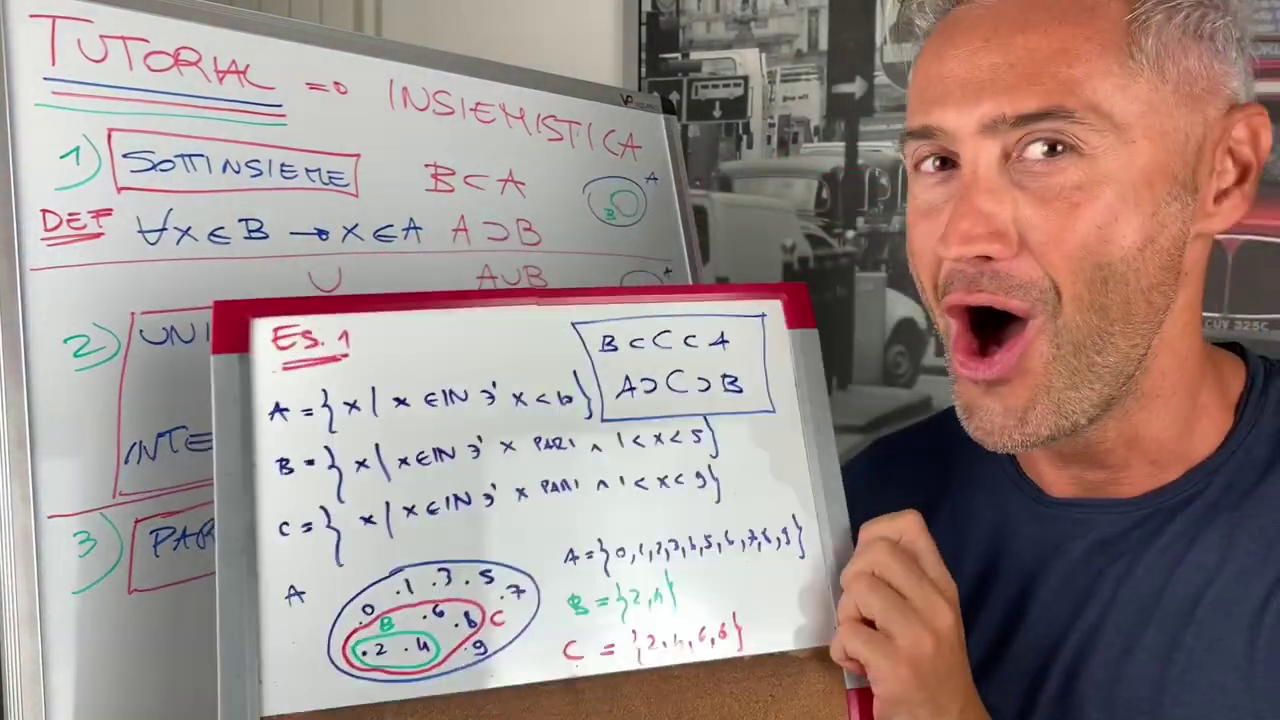 TUTORIAL => INSIEMISTICA
1) SOTTINSIEME B⊂A
A
B
DEF ∀x∈B → x∈A A⊃B
∪ A∪B
A
2) UNI
INTE
3) PAR
Es. 1
B⊂C⊂A
A⊃C⊃B
A = {x | x∈IN ∋' x<10}
B = {x | x∈IN ∋' x PARI ∧ 1<x<5}
C = {x | x∈IN ∋' x PARI ∧ 1<x<9}
A = {0,1,2,3,4,5,6,7,8,9}
B = {2,4}
C = {2,4,6,8}
A
.1 .3 .5
.0 .7
B .6 .8 C
.2 .4 .9
CUV 325C